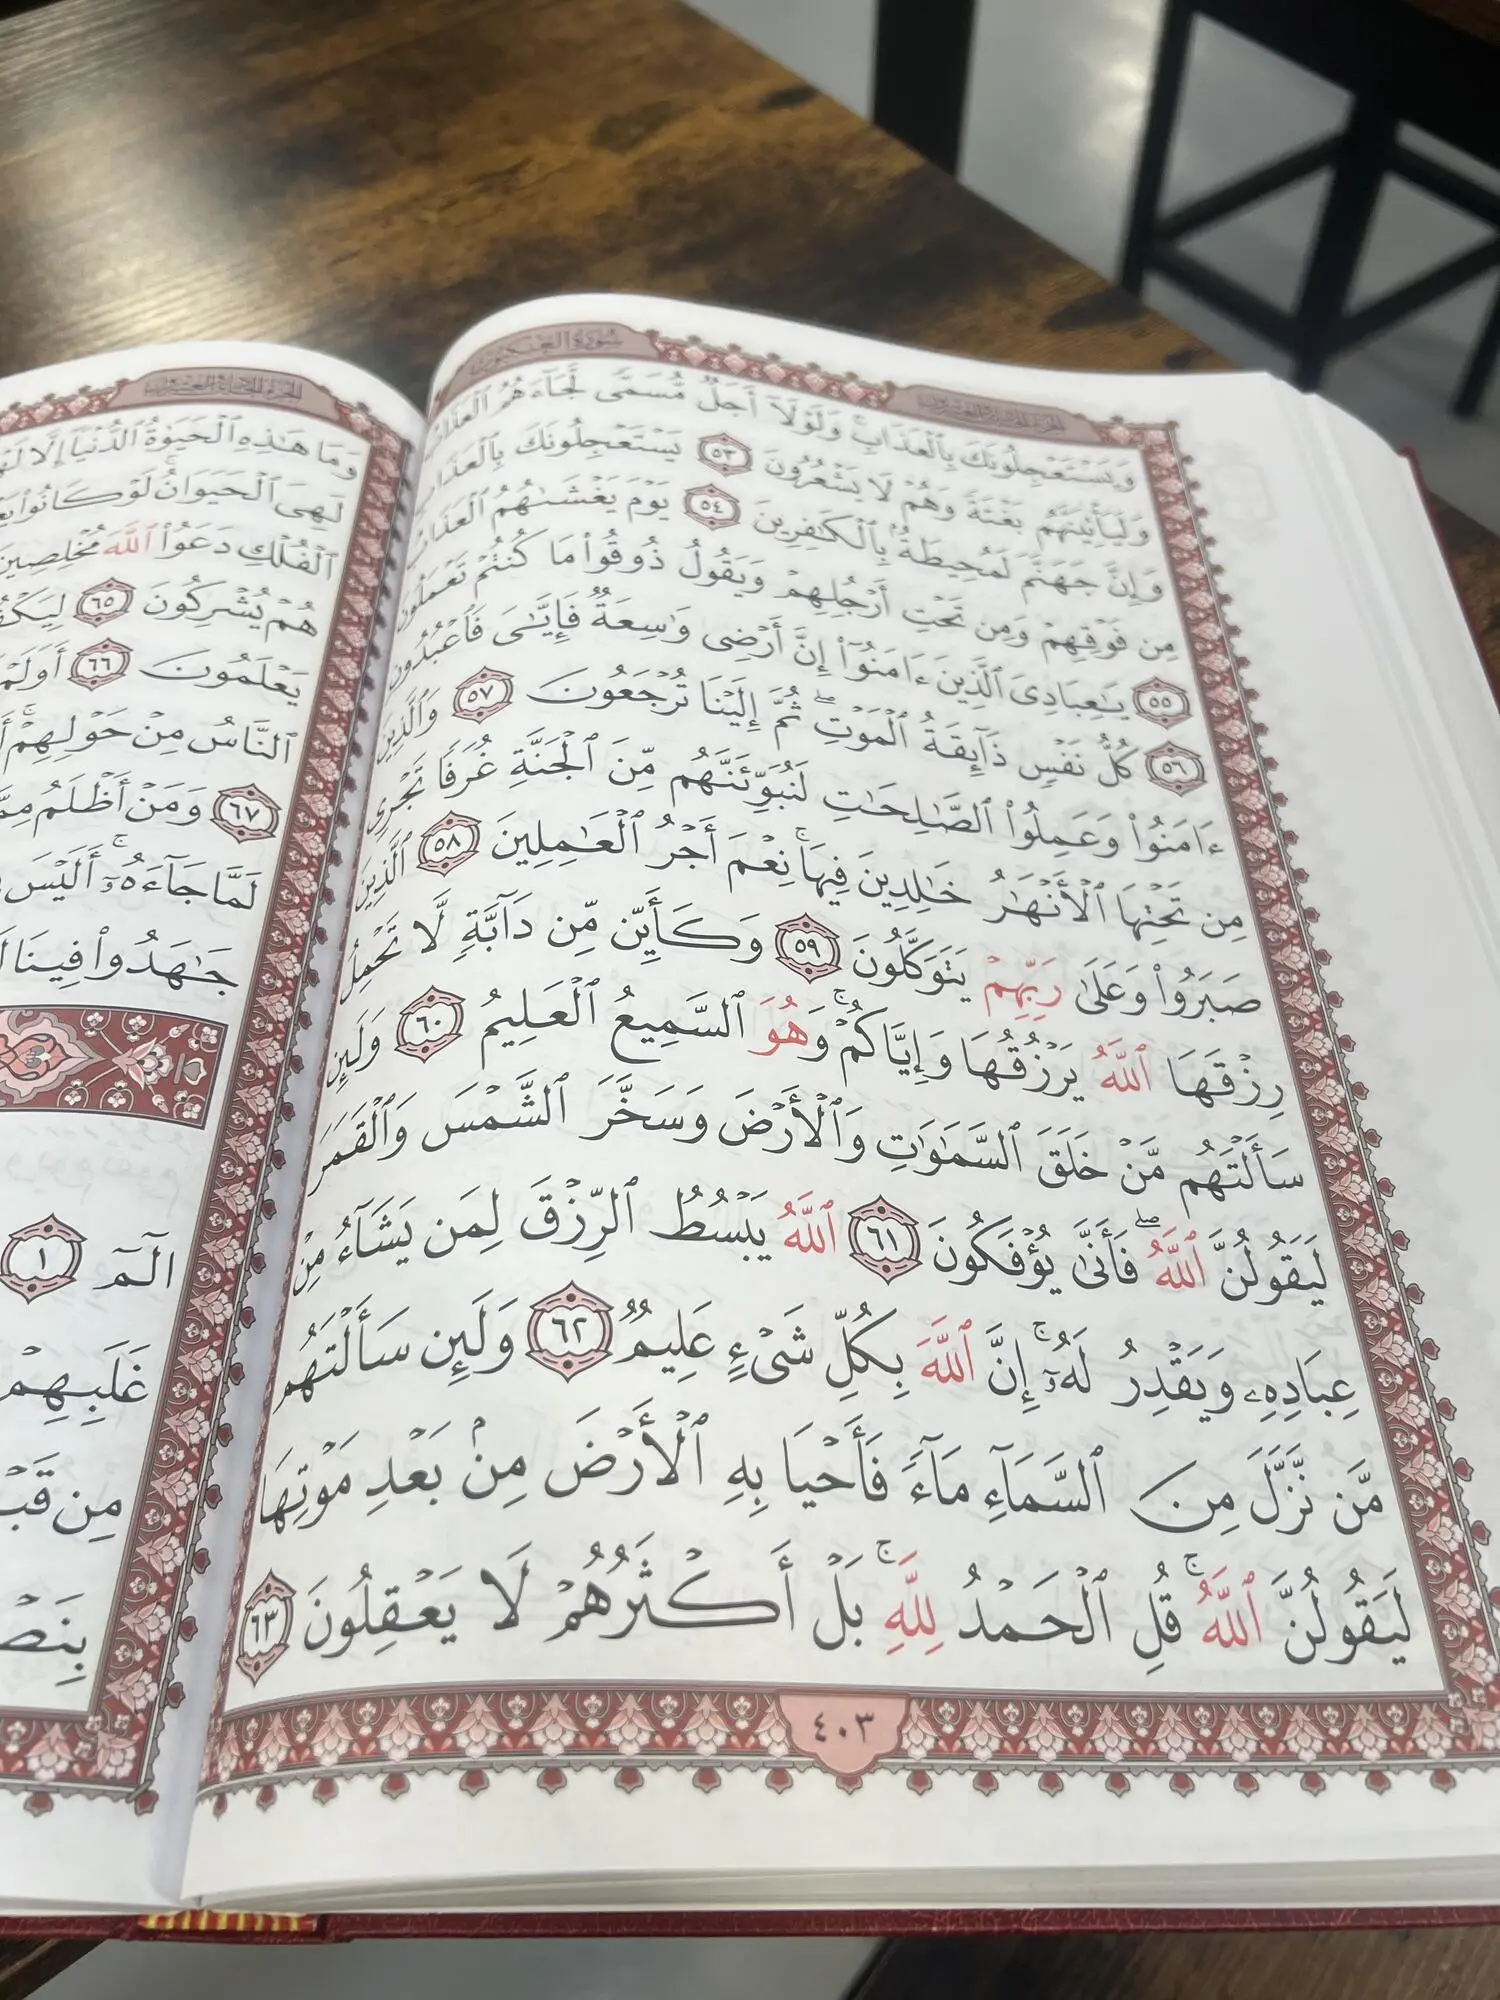 سُورَةُ العَنكَبُوتِ
وَيَسْتَعْجِلُونَكَ بِٱلْعَذَابِ ۚ وَلَوْلَآ أَجَلٌ مُّسَمًّى لَّجَآءَهُمُ ٱلْعَذَابُ
وَلَيَأْتِيَنَّهُم بَغْتَةً وَهُمْ لَا يَشْعُرُونَ ٥٣ يَسْتَعْجِلُونَكَ بِٱلْعَذَابِ
وَإِنَّ جَهَنَّمَ لَمُحِيطَةٌۢ بِٱلْكَـٰفِرِينَ ٥٤ يَوْمَ يَغْشَىٰهُمُ ٱلْعَذَابُ
مِن فَوْقِهِمْ وَمِن تَحْتِ أَرْجُلِهِمْ وَيَقُولُ ذُوقُوا۟ مَا كُنتُمْ تَعْمَلُونَ
٥٥ يَـٰعِبَادِىَ ٱلَّذِينَ ءَامَنُوٓا۟ إِنَّ أَرْضِى وَٰسِعَةٌ فَإِيَّـٰىَ فَٱعْبُدُونِ
٥٦ كُلُّ نَفْسٍ ذَآئِقَةُ ٱلْمَوْتِ ۖ ثُمَّ إِلَيْنَا تُرْجَعُونَ ٥٧ وَٱلَّذِينَ
ءَامَنُوا۟ وَعَمِلُوا۟ ٱلصَّـٰلِحَـٰتِ لَنُبَوِّئَنَّهُم مِّنَ ٱلْجَنَّةِ غُرَفًا تَجْرِى
مِن تَحْتِهَا ٱلْأَنْهَـٰرُ خَـٰلِدِينَ فِيهَا ۚ نِعْمَ أَجْرُ ٱلْعَـٰمِلِينَ ٥٨ ٱلَّذِينَ
صَبَرُوا۟ وَعَلَىٰ رَبِّهِمْ يَتَوَكَّلُونَ ٥٩ وَكَأَيِّن مِّن دَآبَّةٍ لَّا تَحْمِلُ
رِزْقَهَا ٱللَّهُ يَرْزُقُهَا وَإِيَّاكُمْ ۚ وَهُوَ ٱلسَّمِيعُ ٱلْعَلِيمُ ٦٠ وَلَئِن
سَأَلْتَهُم مَّنْ خَلَقَ ٱلسَّمَـٰوَٰتِ وَٱلْأَرْضَ وَسَخَّرَ ٱلشَّمْسَ وَٱلْقَمَرَ
لَيَقُولُنَّ ٱللَّهُ ۖ فَأَنَّىٰ يُؤْفَكُونَ ٦١ ٱللَّهُ يَبْسُطُ ٱلرِّزْقَ لِمَن يَشَآءُ مِنْ
عِبَادِهِۦ وَيَقْدِرُ لَهُۥٓ ۚ إِنَّ ٱللَّهَ بِكُلِّ شَىْءٍ عَلِيمٌ ٦٢ وَلَئِن سَأَلْتَهُم
مَّن نَّزَّلَ مِنَ ٱلسَّمَآءِ مَآءً فَأَحْيَا بِهِ ٱلْأَرْضَ مِنۢ بَعْدِ مَوْتِهَا
لَيَقُولُنَّ ٱللَّهُ ۚ قُلِ ٱلْحَمْدُ لِلَّهِ ۚ بَلْ أَكْثَرُهُمْ لَا يَعْقِلُونَ ٦٣
٤٠٣
وَمَا هَـٰذِهِ ٱلْحَيَوٰةُ ٱلدُّنْيَآ إِلَّا
لَهِىَ ٱلْحَيَوَانُ ۚ لَوْ كَانُوا۟
ٱلْفُلْكِ دَعَوُا۟ ٱللَّهَ مُخْلِصِينَ
هُمْ يُشْرِكُونَ ٦٥
يَعْلَمُونَ ٦٦ أَوَلَمْ
ٱلنَّاسُ مِنْ حَوْلِهِمْ ۚ
٦٧ وَمَنْ أَظْلَمُ
لَمَّا جَآءَهُۥٓ ۚ أَلَيْسَ
جَـٰهَدُوا۟ فِينَا
الٓمٓ ١
غَلَبِهِمْ
مِن